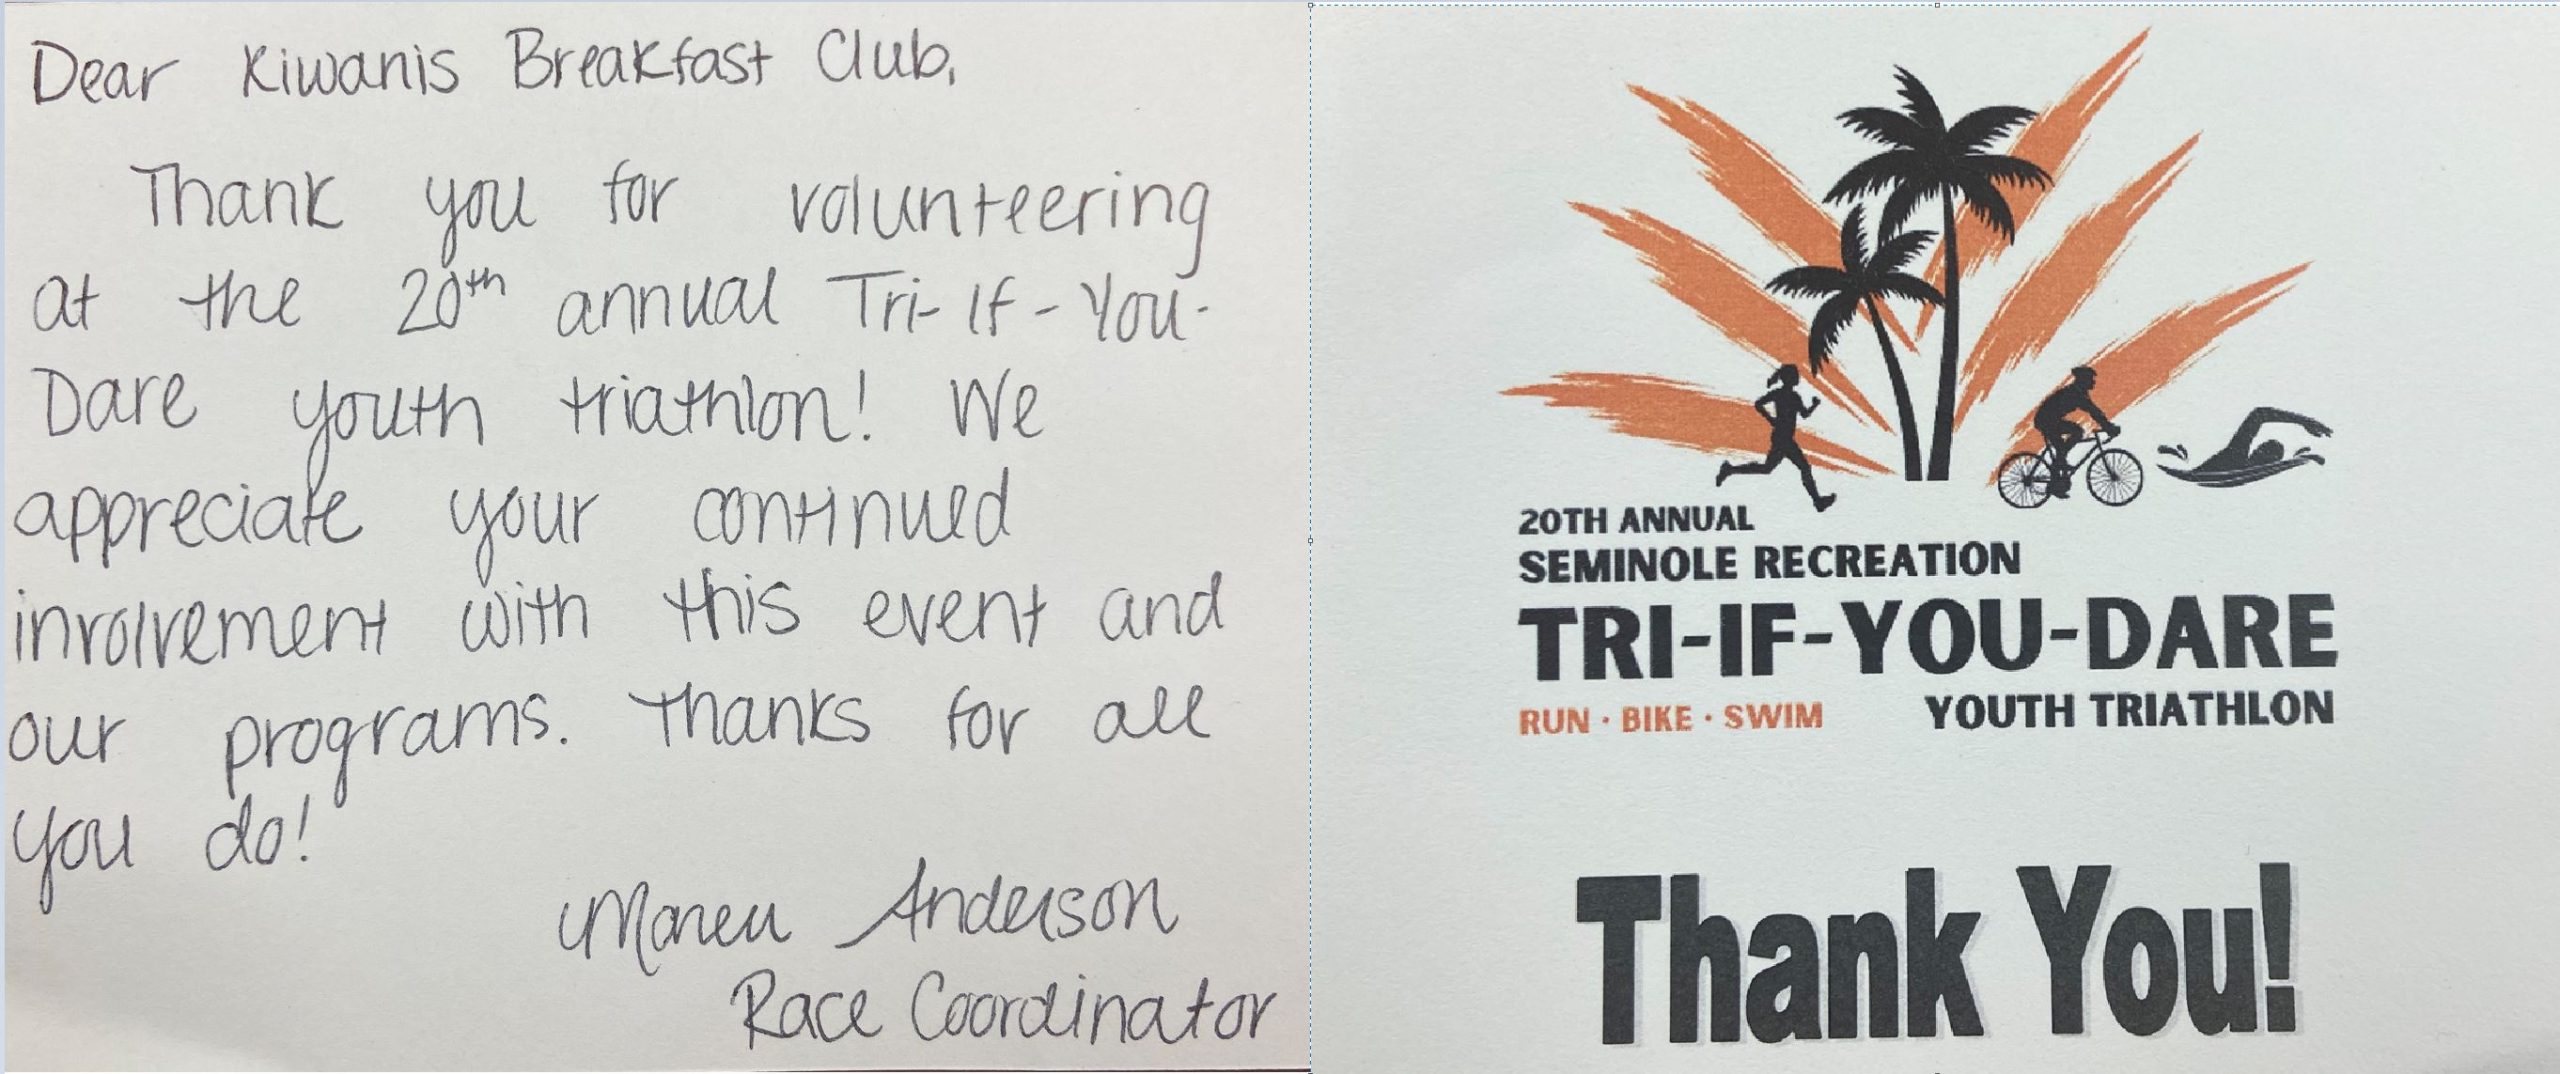 Dear Kiwanis Breakfast Club,
Thank you for volunteering
at the 20th annual Tri-If-You-
Dare youth triathlon! We
appreciate your continued
involvement with this event and
our programs. Thanks for all
you do!
Anderson
Race Coordinator
20TH ANNUAL
SEMINOLE RECREATION
TRI-IF-YOU-DARE
RUN · BIKE · SWIM YOUTH TRIATHLON
Thank You!